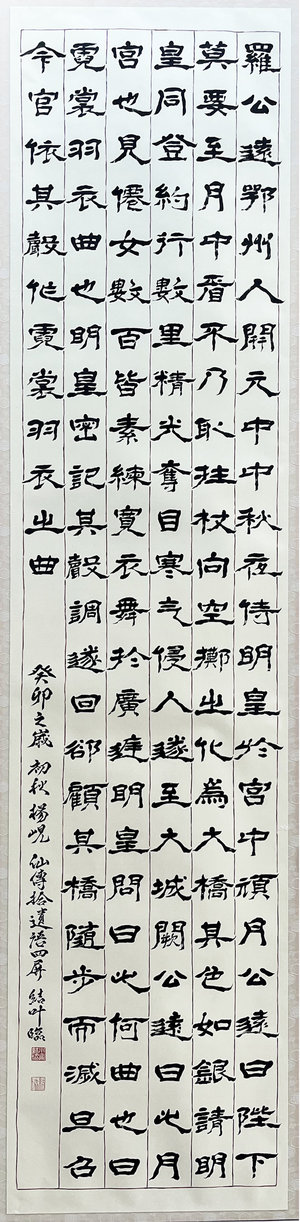 羅公遠鄂州人開元中中秋夜侍明皇於宮中頑月公遠曰陛下
莫要至月中看不乃取拄杖向空擲之化為大橋其色如銀請明
皇同登約行數里精光奪目寒气侵人遂至大城闕公遠曰此月
宮也見僊女數百皆素練寬衣舞於廣庭明皇問曰此何曲也曰
霓裳羽衣曲也明皇密記其聲調遂回卻顧其橋隨步而滅旦召
令官依其聲作霓裳羽衣之曲
癸卯之歲初秋楊峴仙傳拾遺語四屏結叶臨